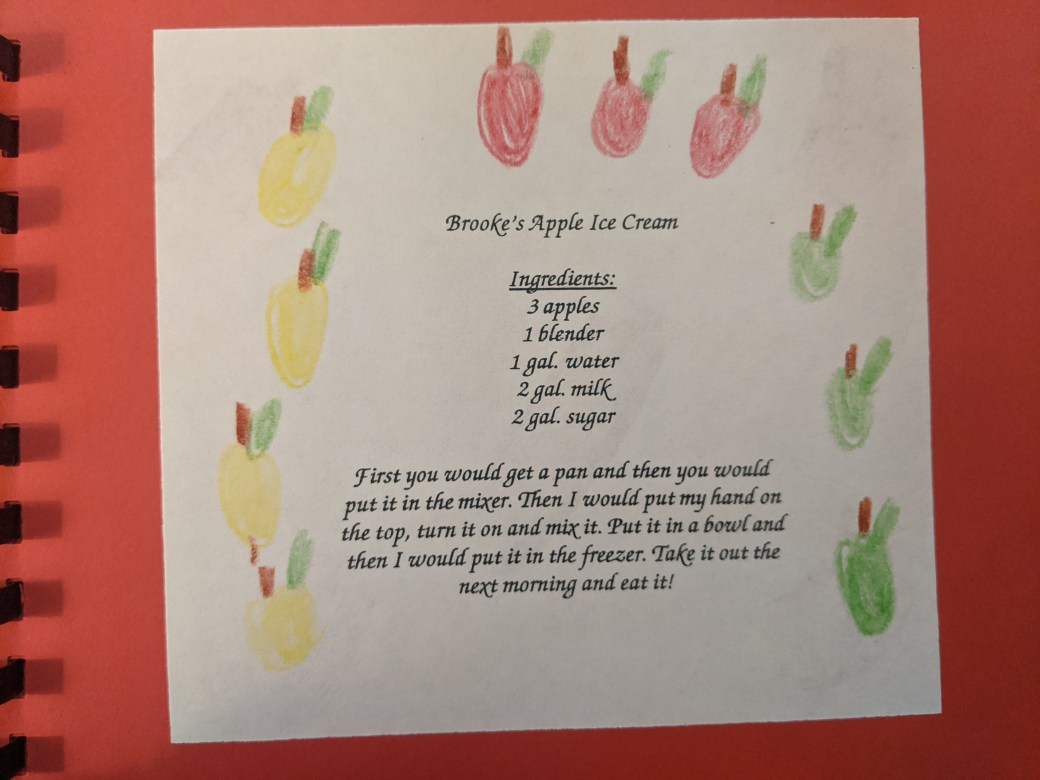 Brooke's Apple Ice Cream
Ingredients:
3 apples
1 blender
1 gal. water
2 gal. milk
2 gal. sugar
First you would get a pan and then you would
put it in the mixer. Then I would put my hand on
the top, turn it on and mix it. Put it in a bowl and
then I would put it in the freezer. Take it out the
next morning and eat it!